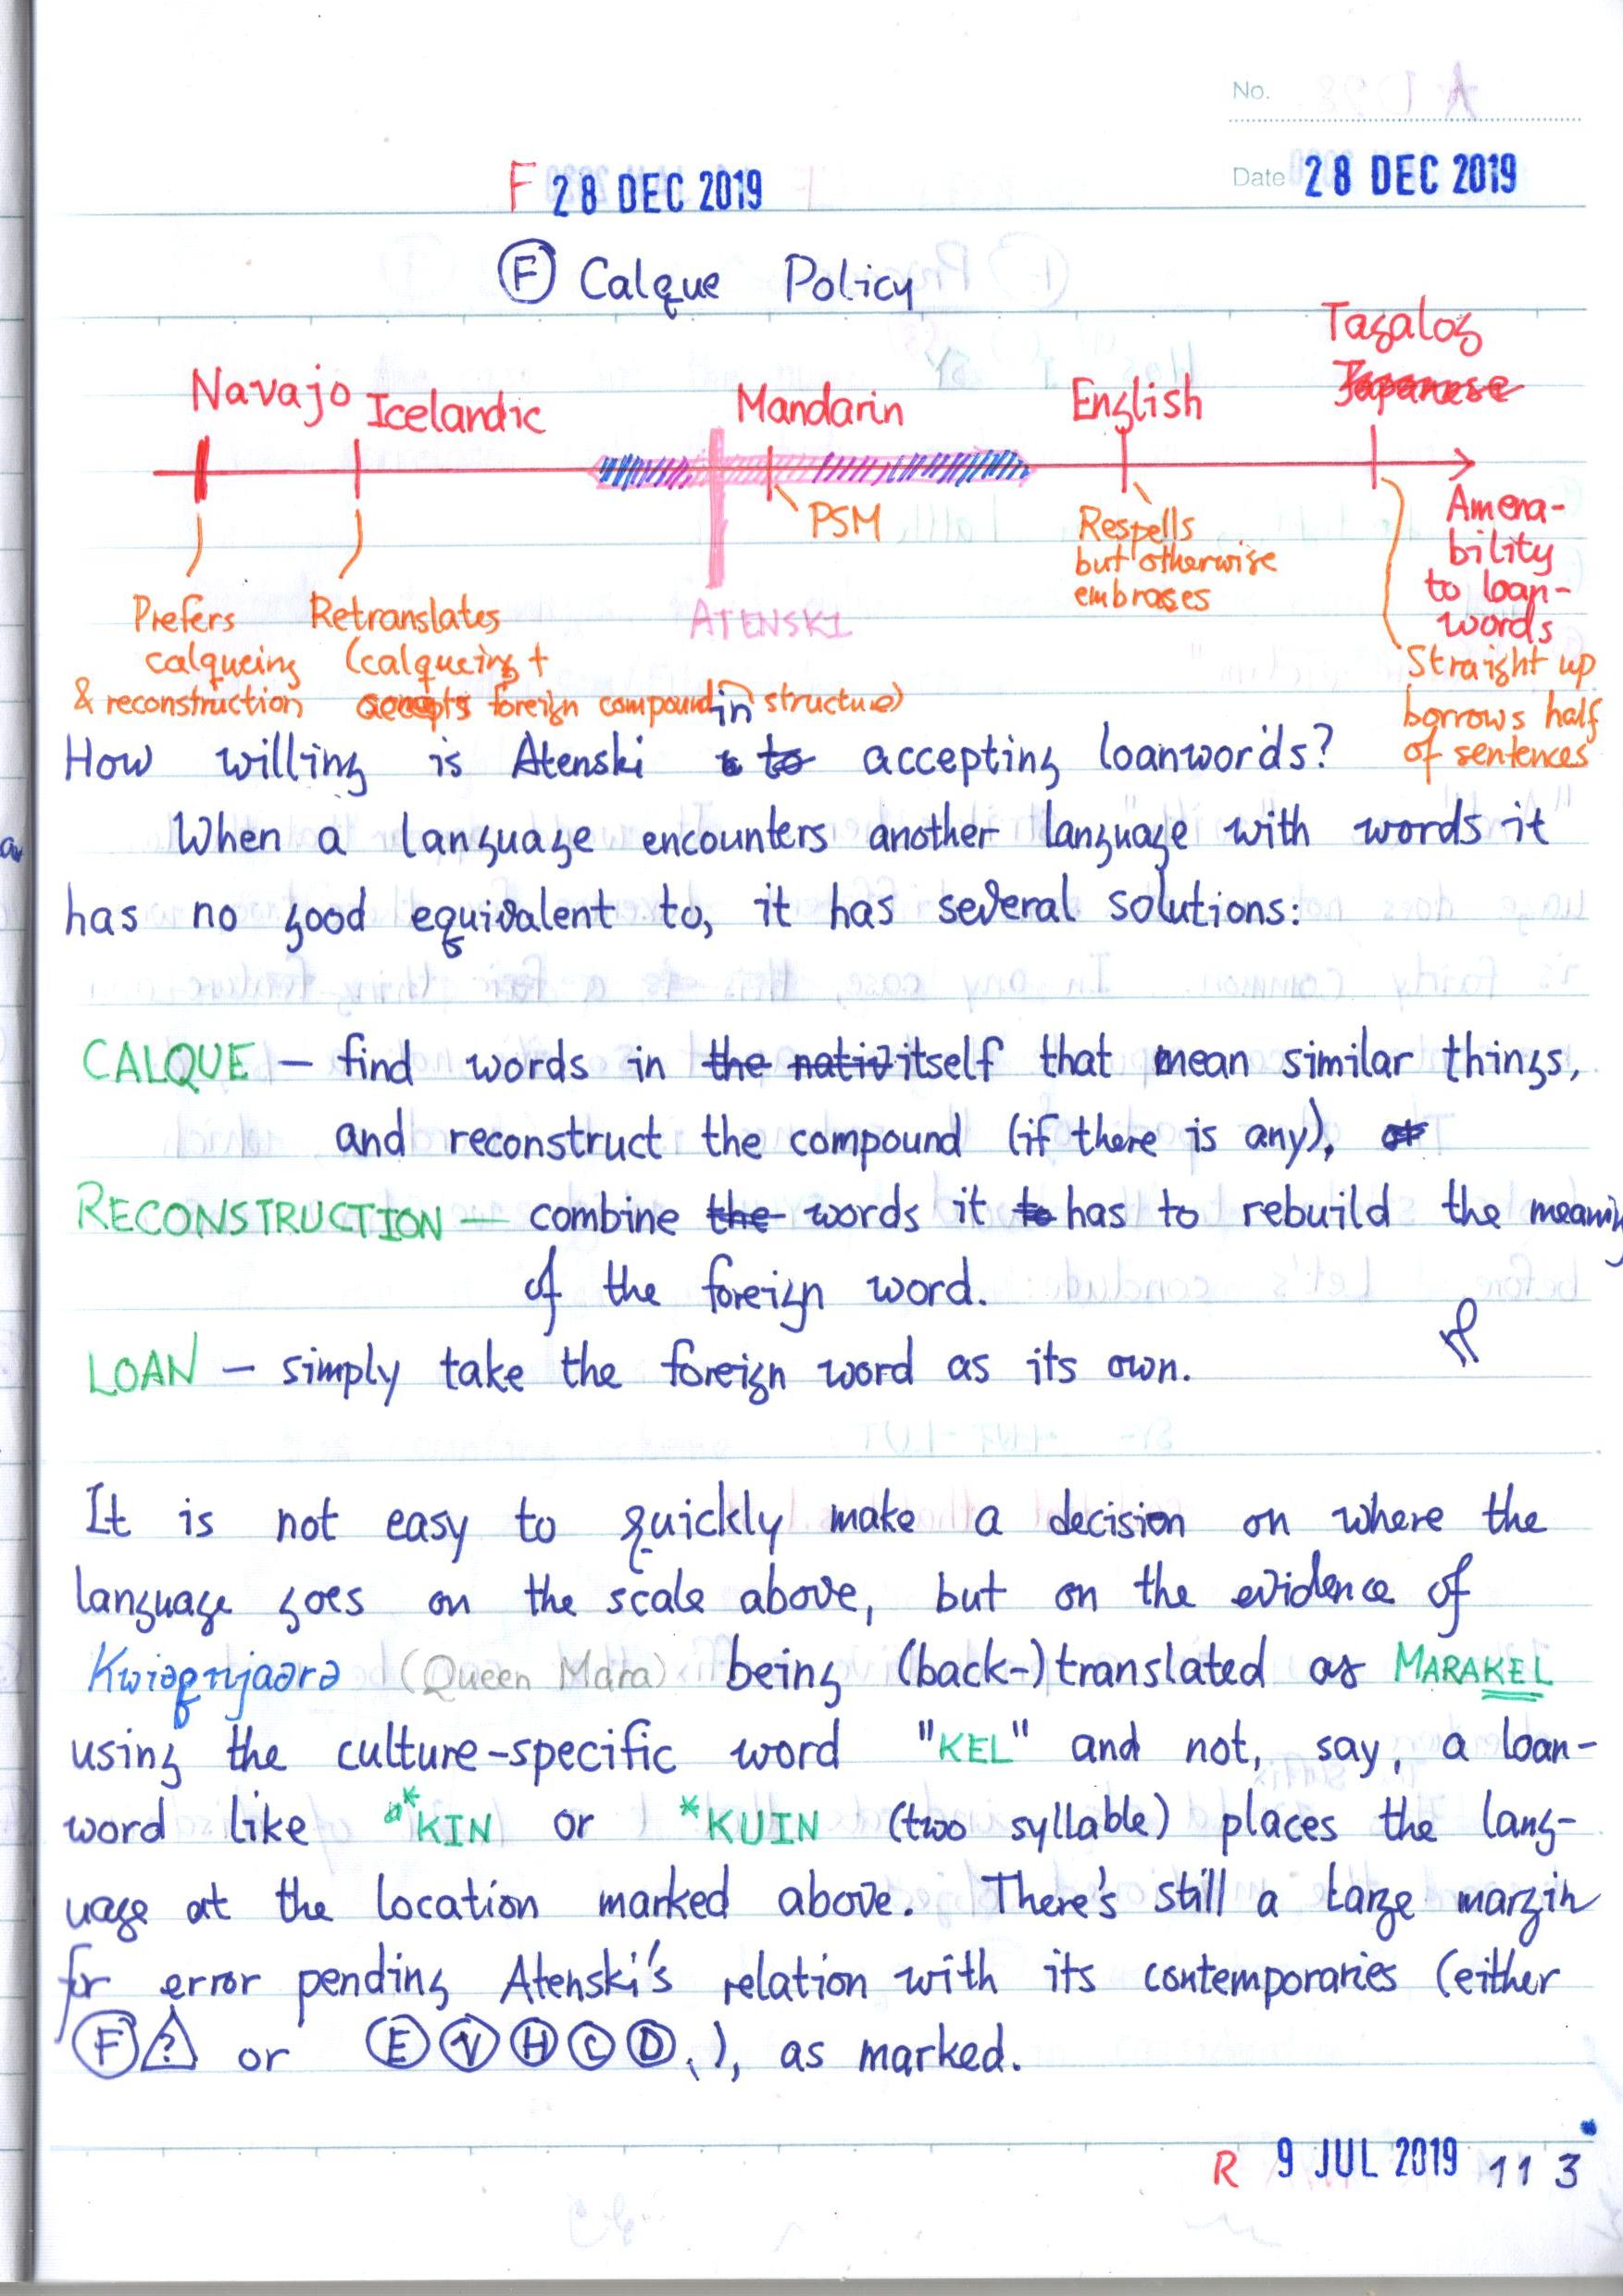 No.
Date 28 DEC 2019
F 28 DEC 2019
Ⓕ Calque Policy
Tagalog
Japanese
Navajo Icelandic Mandarin English
PSM
Respells
but otherwise
embrases
Amena-
bility
to loan-
words
ATENSKI
Prefers
calqueing
& reconstruction
Retranslates
(calqueing +
accepts foreign compound structure)
Straight up
borrows half
of sentences
How willing is Atenski to in accepting loanwords?
When a language encounters another language with words it
has no good equivalent to, it has several solutions:
CALQUE — find words in the nativ itself that mean similar things,
and reconstruct the compound (if there is any), or
RECONSTRUCTION — combine the words it to has to rebuild the meaning
of the foreign word.
LOAN — simply take the foreign word as its own.
It is not easy to quickly make a decision on where the
language goes on the scale above, but on the evidence of
(Queen Mara) being (back-)translated as MARAKEL
using the culture-specific word "KEL" and not, say, a loan-
word like *KIN or *KUIN (two syllable) places the lang-
uage at the location marked above. There's still a large margin
for error pending Atenski's relation with its contemporaries (either
Ⓕ ? or Ⓔ Ⓥ Ⓗ Ⓒ Ⓓ), as marked.
R 9 JUL 2019 113